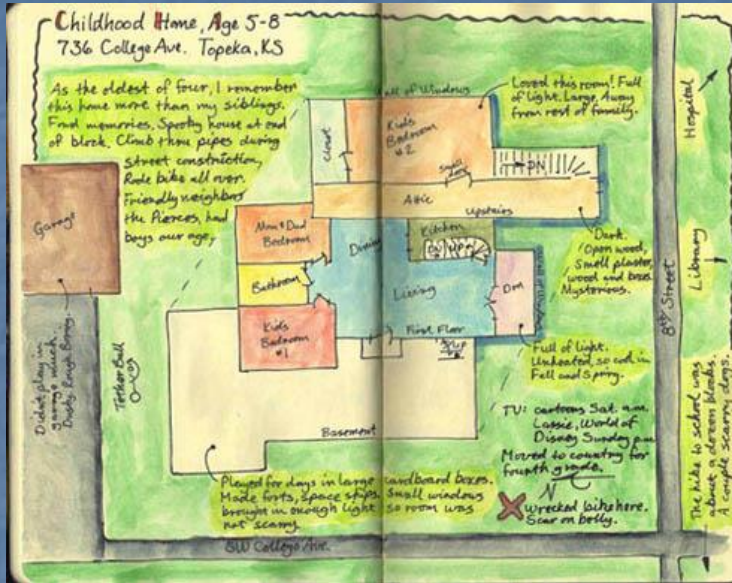 Childhood Home, Age 5-8
736 College Ave. Topeka, KS
As the oldest of four, I remember
this home more than my siblings.
Fond memories. Spooky house at end
of block. Climb thru pipes during
street construction,
Rode bike all over.
Friendly neighbors
the Pierces, had
boys our age,
Wall of Windows
Loved this room! Full
of light. Large. Away
from rest of family.
Closet
Kid's
Bedroom
#2
Small
door
DN
Attic
Upstairs
Dark.
Open wood,
Small plaster,
wood and boxes.
Mysterious.
Garage
Mom & Dad
Bedroom
Dining
Kitchen
DN
UP
Bathroom
Living
Den
Kid's
Bedroom
#1
First Floor
UP
Full of light.
Unheated, so cool in
Fall and Spring.
Basement
Didn't play in
garage much.
Dusty. Rough. Boring.
Tether Ball
TV: cartoons Sat. a.m.
Lassie, World of
Disney Sunday p.m.
Moved to country for
fourth grade.
N
Wrecked bike here.
Scar on belly.
Played for days in large cardboard boxes.
Made forts, space ships. Small windows
brought in enough light so room was
not scarry
SW College Ave.
8th Street
Hospital
Library
The hike to school was
about a dozen blocks.
A couple scarry dogs.